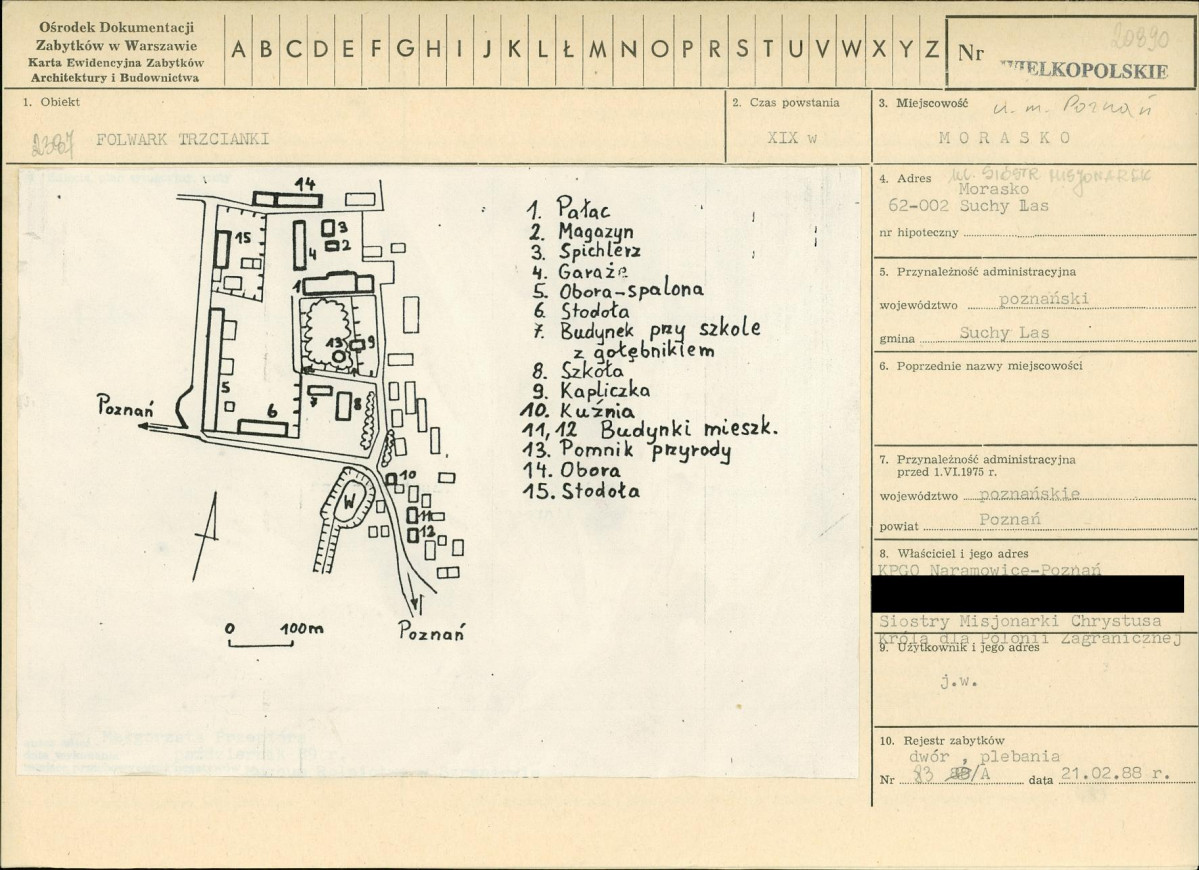 Ośrodek Dokumentacji
Zabytków w Warszawie
Karta Ewidencyjna Zabytków
Architektury i Budownictwa
A B C D E F G H I J K L Ł M N O P R S T U V W X Y Z
Nr 20890
WIELKOPOLSKIE
1. Obiekt
FOLWARK TRZCIANKI
2. Czas powstania
XIX w
3. Miejscowość u. m. Poznań
MORASKO
4. Adres ul. SIÓSTR MISJONAREK
Morasko
62-002 Suchy Las
nr hipoteczny
5. Przynależność administracyjna
województwo poznański
gmina Suchy Las
6. Poprzednie nazwy miejscowości
7. Przynależność administracyjna
przed 1.VI.1975 r.
województwo poznańskie
powiat Poznań
8. Właściciel i jego adres
KPGO Naramowice-Poznań
Siostry Misjonarki Chrystusa
Króla dla Polonii Zagranicznej
9. Użytkownik i jego adres
j.w.
10. Rejestr zabytków
dwór , plebania
Nr 83 /A data 21.02.88 r.
1. Pałac
2. Magazyn
3. Spichlerz
4. Garaże
5. Obora-spalona
6. Stodoła
7. Budynek przy szkole
z gołębnikiem
8. Szkoła
9. Kapliczka
10. Kuźnia
11,12 Budynki mieszk.
13. Pomnik przyrody
14. Obora
15. Stodoła
14
15
3
2
4
1
13
9
5
7
8
6
Poznań
10
W
11
12
0 100m
Poznań